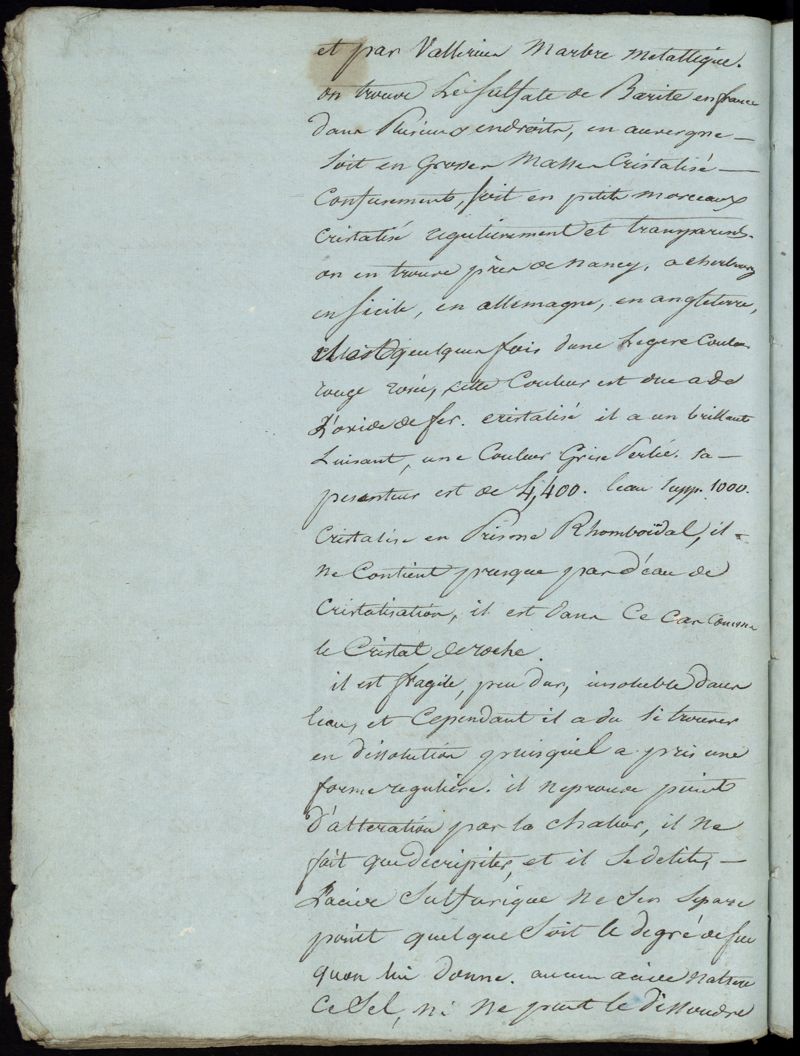 et par Vallirius Marbre metallique.
on trouve Le sulfate de Barite en france
dans Plusieurs endroits, en auvergne —
soit en Grosses Masses Cristalisé —
Confusement, soit en petits morceaux
cristalisé regulierement et transparent.
on en trouve près de nancy, a cherbourg
en Sicile, en allemagne, en angleterre,
il est quelques fois d'une Legere Couleur
rouge rosée, cette Couleur est due a de
L'oxide de fer. cristalisé il a un brillant
Luisant, une Couleur Grise Perlée. sa —
pesanteur est de 4,400. l'eau supp. 1000.
Cristalise en Prisme Rhomboïdal, il -
ne Contient presque pas d'eau de
Cristalisation, il est dans Ce cas comme
le Cristal de roche.
il est fragile peu dur, insoluble dans
l'eau, et Cependant il a du se trouver
en dissolution puisquel a pris une
forme reguliere. il neprouve point
d'alteration par la chaleur, il ne
fait que decrepiter, et il se delite, —
L'acide Sulfurique ne s'en separe
point quelque soit le degré de feu
quon lui donne. aucun acide n'altere
Ce Sel, ni ne peut le dissoudre